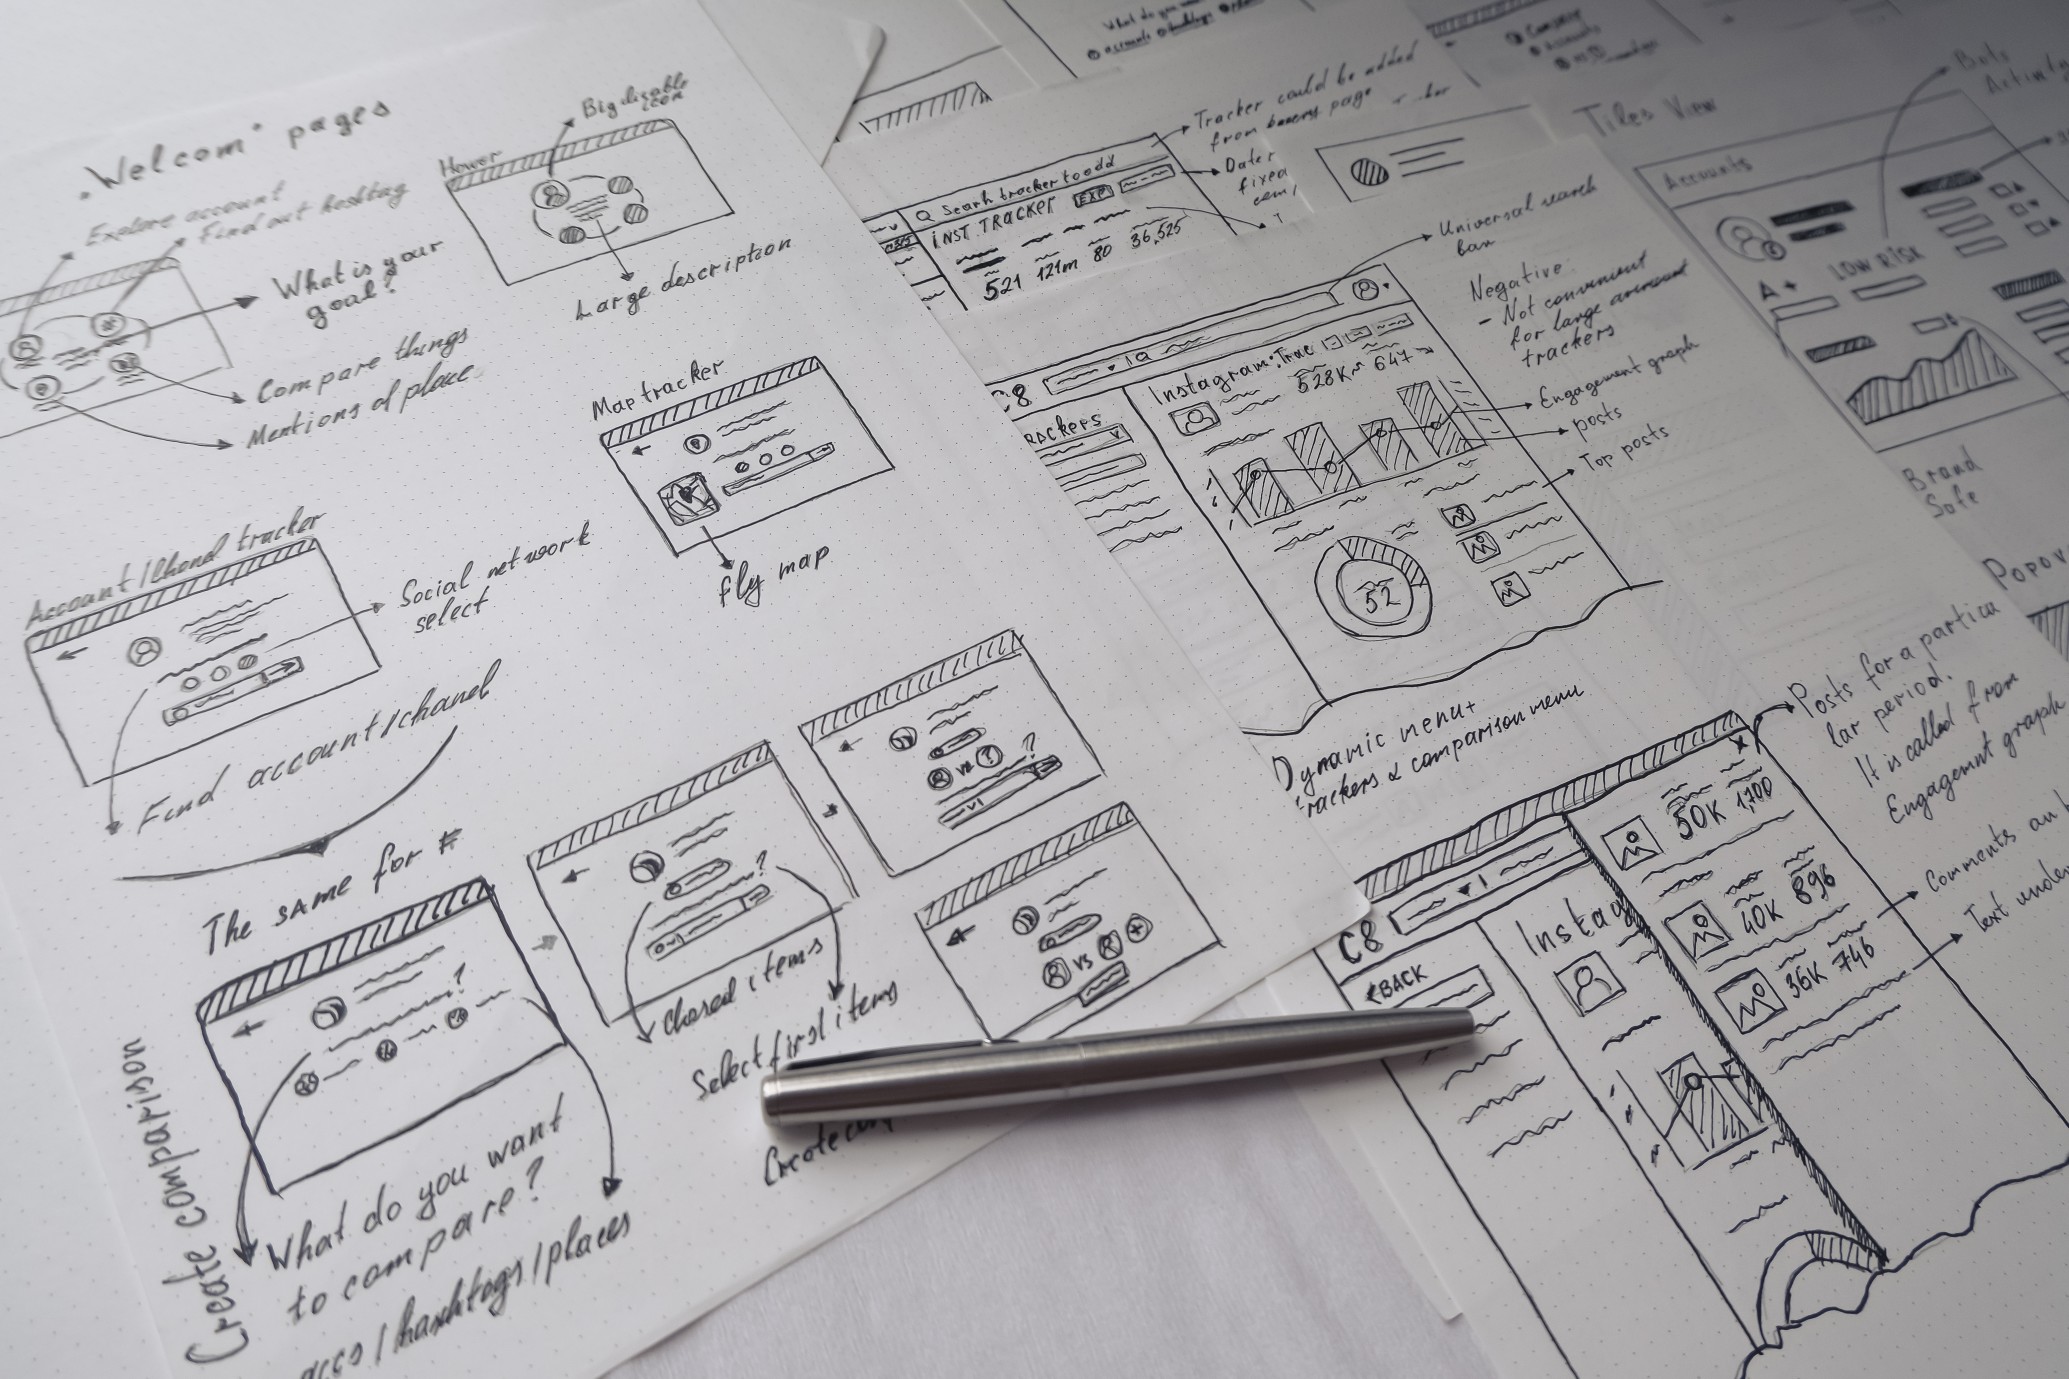 "Welcom" pages
Explore account
Find out hashtag
What is your
goal?
Compare things
Mentions of place
Hower
Big disable
icon
Large description
Map tracker
fly map
Account/Chanel tracker
Social network
select
Find account/chanel
The same for #
Create comparison
?
What do you want
to compare?
accs/hashtags/places
?
Chosed items
Select first items
VS ?
VS +
Create
What do you
accounts
Tracker could be added
from page
Date
fixed
Search tracker to add
INST. TRACKER EXP
521 121m 80 36,525
Universal search
bar
Negative:
- Not convenient
for large amount
trackers
Engagement graph
posts
Top posts
C8
RACKERS
Instagram: Trac
528K 647
52
Dynamic menu+
rackers & comparison menu
Compare
Accounts
Tiles View
Bots
Activity
Accounts
A+ LOW RISK
Brand
Safe
Popov
Posts for a particu
lar period.
It is called from
Engagement graph
Comments an
Text under
C8
<BACK
Instag
x
50K 1,700
40K 896
36K 746